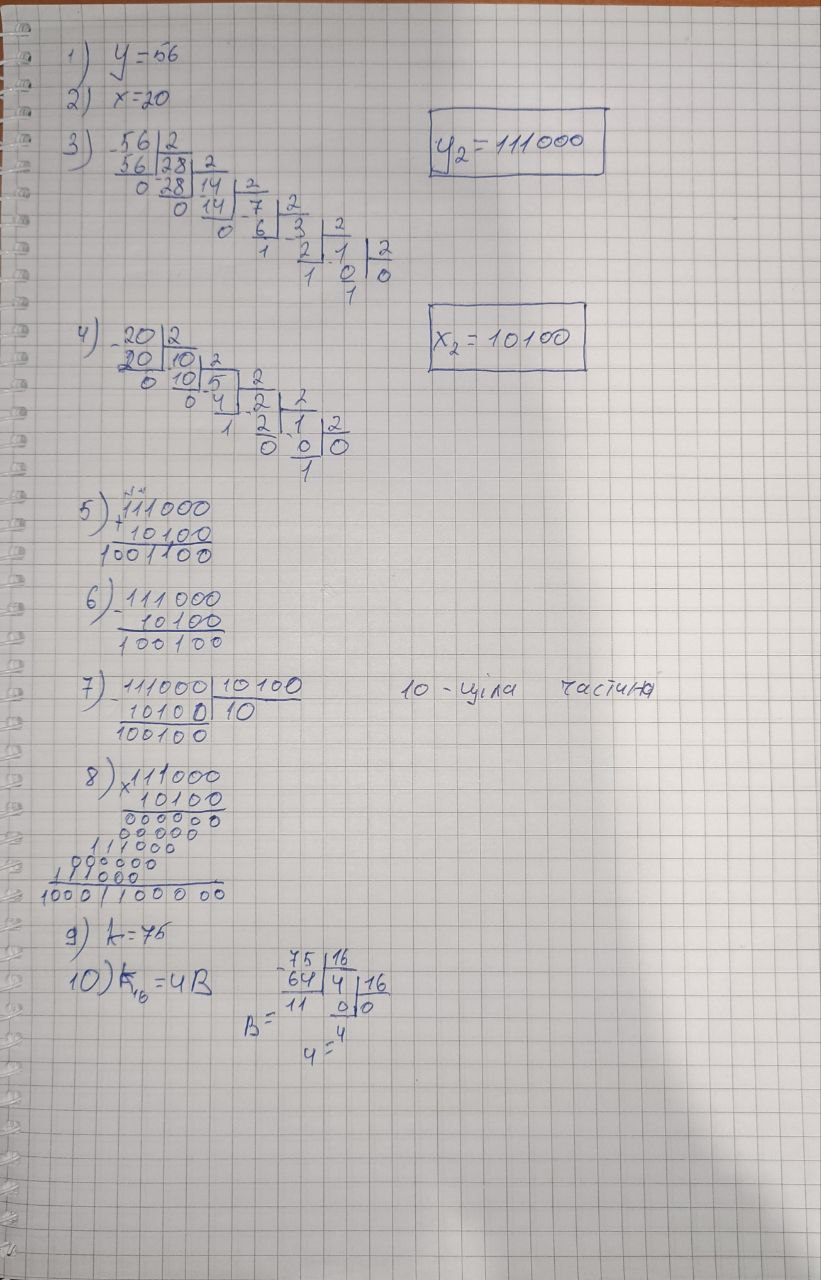 1) y=56
2) x=20
3) -56 2
56 28 2
0 -28 14 2
0 -14 7 2
0 -6 3 2
1 -2 1 2
1 0 0
1
y₂=111000
4) -20 2
20 10 2
0 10 5 2
0 -4 2 2
1 -2 1 2
0 0 0
1
x₂=10100
5) 111000
+ 10100
1001100
6) -111000
10100
100100
7) -111000 10100
10100 10
100100
10 - ціла частина
8) x111000
10100
000000
00000
111000
000000
111000
10001100000
9) k=75
10) k₁₆=4B
-75 16
64 4 16
11 0 0
B= 4
4=